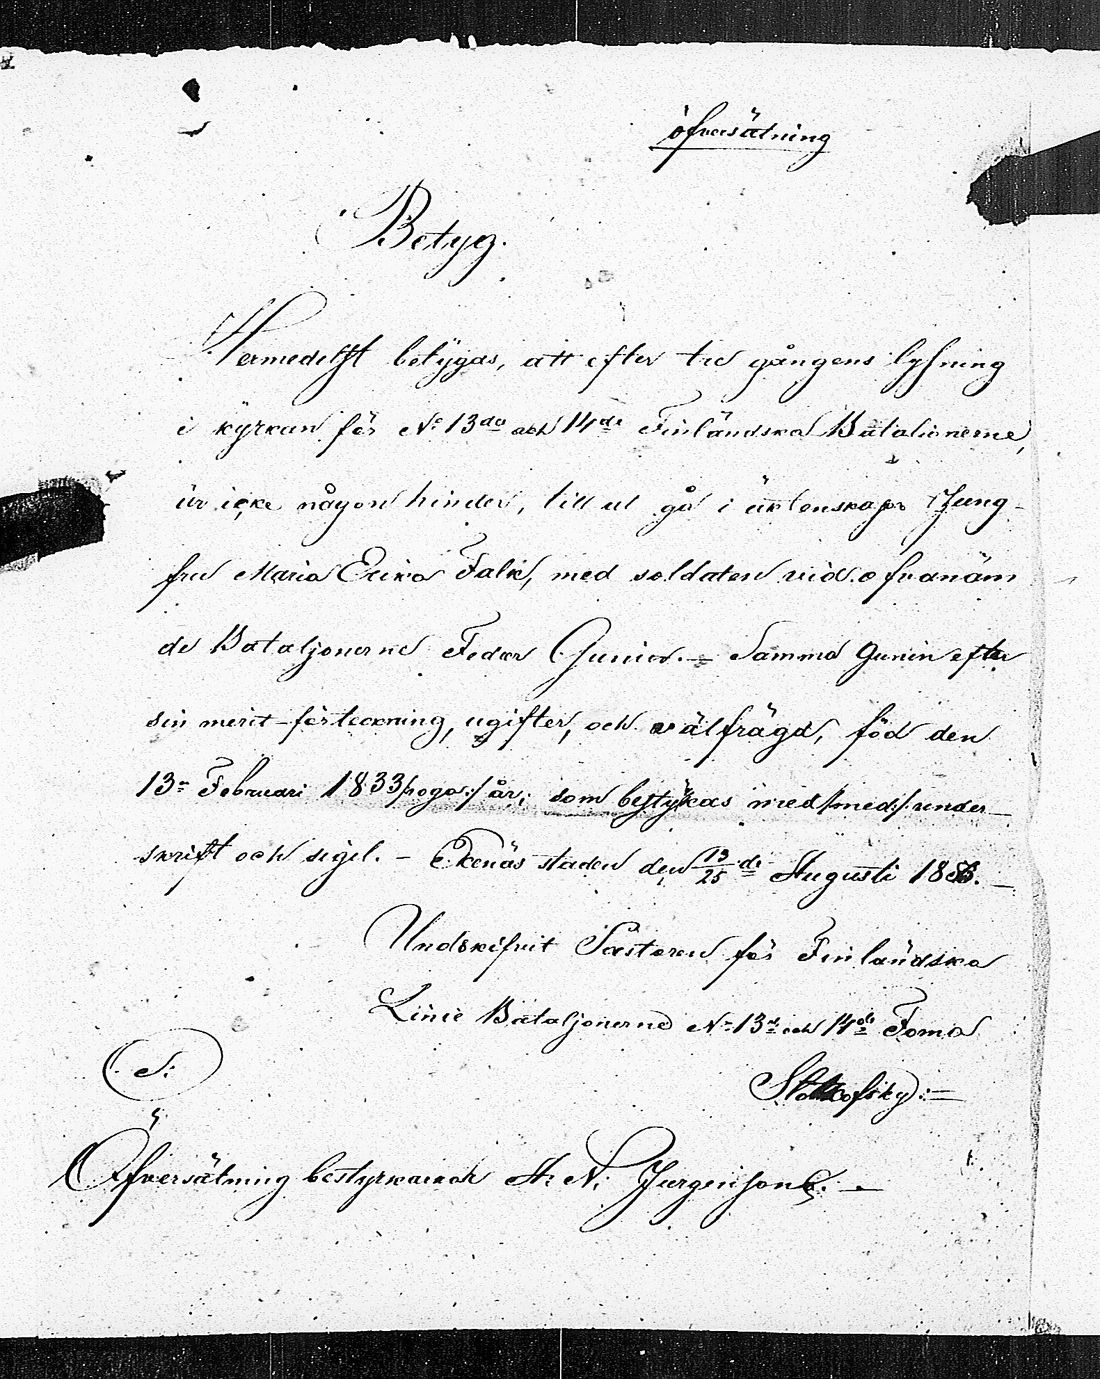 öfversätning
Betyg.
Hermedelst betygas, att efter tre gångens lysning
i kyrkan för No 13de och 14de Finländska Batalionerne,
är icke någon hinder, till ut gå i äktenskapp Jung-
fru Maria Erika Falk, med soldaten vid ofvanäm
de Bataljonerne Fedor Gunin. – Samma Gunin efter
sin merit-förteckning, ugifter, och välfrägd, föd den
13e Februari 1833 år; som bestykas med /:med:/ under-
skrift och sigel. – Ekenäs staden den 13/25 de Augusti 18
Undskifvit Pastoren för Finländska
Linie Bataljonerne No 13de och 14de Foma
S:
Öfversätning bestyrkar N. Jurgenson